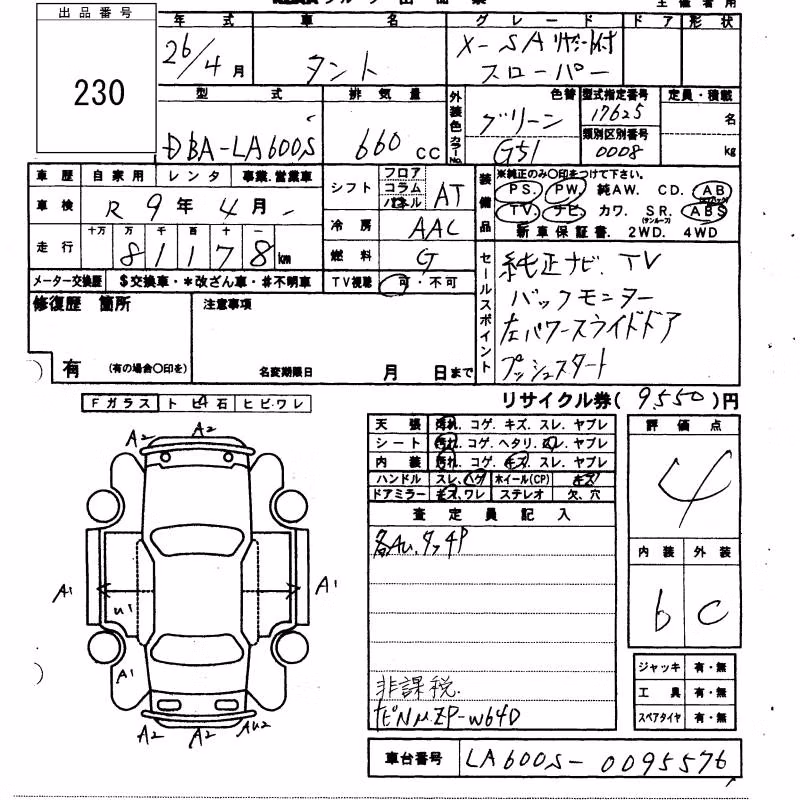 出品番号
230
年式
車名
グレード
ドア
形状
26/4月
タント
X-SA リヤシート付
スローパー
型式
排気量
外装色
カラーNo.
色替
型式指定番号
定員・積載
DBA-LA600S
660cc
グリーン
G51
17625
類別区別番号
0008
名
kg
車歴
自家用
レンタ
事業.営業車
車検
R9年4月
走行
十万
万
千
百
十
一
81178km
メーター交換歴
$交換車・*改ざん車・#不明車
シフト
フロア
コラム
パネル
AT
冷房
AAC
燃料
G
TV視聴
可・不可
装備品
※純正のみ〇印をつけて下さい。
PS. PW. 純AW. CD. AB
TV. ナビ. カワ. SR. ABS
新車保証書. 2WD. 4WD
セールスポイント
純正ナビ、TV
バックモニター
左パワースライドドア
プッシュスタート
修復歴 箇所
有
(有の場合〇印を)
注意事項
名変期限日
月
日まで
リサイクル券(9550)円
Fガラス
トビ石
ヒビ・ワレ
天張
汚れ. コゲ. キズ. スレ. ヤブレ
シート
汚れ. コゲ. ヘタリ. スレ. ヤブレ
内装
汚れ. コゲ. キズ. スレ. ヤブレ
ハンドル
スレ. ハゲ
ホイール(CP)
キズ
ドアミラー
キズ. ワレ
ステレオ
欠、穴
査定員記入
各AU. タッチP
非課税.
ナビNu.ZP-W64D
評価点
4
内装
外装
b
C
ジャッキ
有・無
工具
有・無
スペアタイヤ
有・無
車台番号
LA600S-0095576
A2
A2
A1
U1
A1
A1
A2
A2
AU2